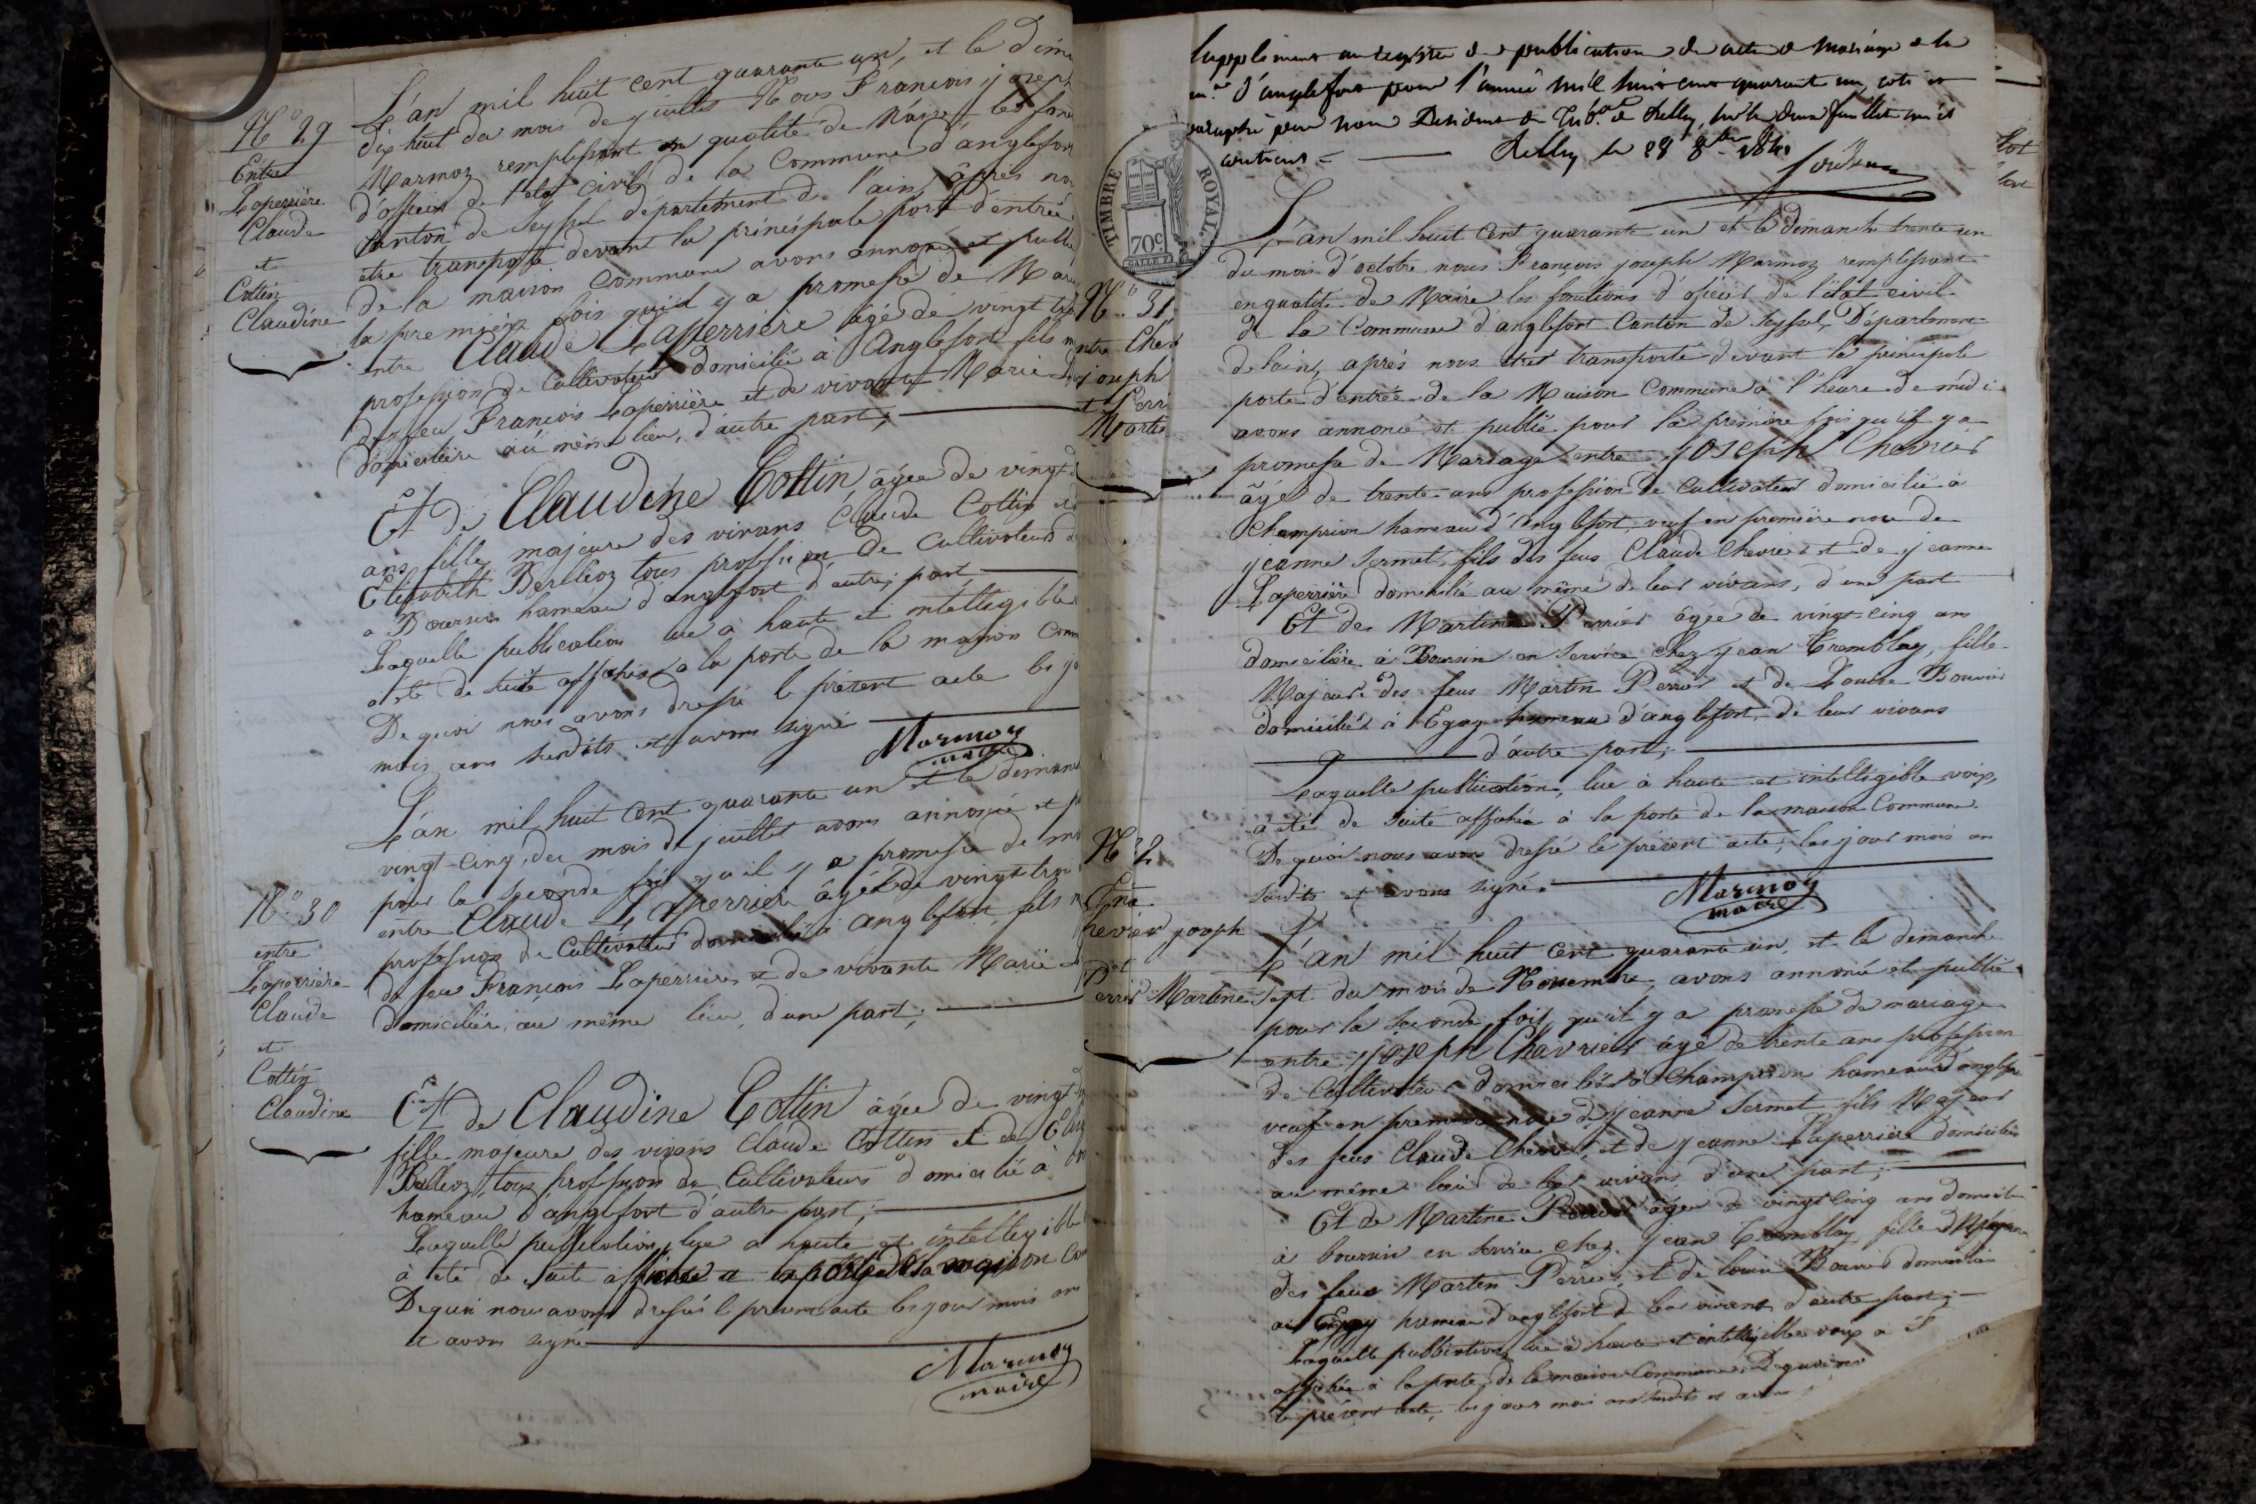 N.° 29
Entre
Laperrière
Claude
et
Cottin
Claudine
L'an mil huit cent quarante un, et le dim
dix huit du mois de juillet Nous François joseph
Marmoz remplissant en qualité de Maire les fonc
d'officier de l'état civil de la Commune d'anglefort
Canton de Seyssel departement de l'ain, après no
etre transporté devant la principale porte d'entrée
de la maison Commune avons annoncé et publié
la première fois qu'il y a promesse de Mari
entre Claude Laperrière agé de vingt
profession de Cultivateur domicilié à Anglefort fils
de feu François Laperrière et de vivante Marie
domiciliée au même lieu, d'autre part;
Et de Claudine Cottin âgée de vingt
ans fille majeure des vivans Claude Cottin et
Elisabeth Berlioz tous profession de Cultivateurs
a Boursin hameau d'anglefort d'autre part
Laquelle publication lue à haute et intelligible
a été de suite affichée a la porte de la maison Comm
De quoi nous avons dressé le présent acte les jo
mois ans susdits et avons signé
Marmoz
maire
N° 30
entre
Laperrière
Claude
et
Cottin
Claudine
L'an mil huit cent quarante un et le diman
vingt-cinq du mois de juillet avons annoncé et p
pour la seconde fois qu'il y a promesse de m
entre Claude Laperrière âgé de vingt
profession de Cultivateur domicilié à anglefort, fils
de feu François Laperrière et de vivante Marie
domiciliée, au même lieu, d'une part;
Et de Claudine Cottin âgée de vingt
fille majeure des vivans Claude Cottin et de
tous profession de Cultivateurs domicilié à
hameau d'anglefort d'autre part;
Laquelle publication lue a haute et intelligible
à été de suite affichée a la porte de la maison Co
De quoi nous avons dressé le présent acte les jour mois an
et avons signé
Marmoz
maire
Supplément au registre de publication de acte de mariage de la
d'anglefort pour l'année mil huit cent quarante un, coté et
paraphé pour nous Président du Trib.al de Belley, sur le feuillet
contenus = Belley le 28 8bre 1841
TIMBRE ROYAL
70c
N° 31
entre Chev
joseph
et Perri
Marti
L'an mil huit Cent quarante un et le dimanche trente un
du mois d'octobre nous François joseph Marmoz remplissant
en qualité de Maire les fonctions d'oficier de l'état civil
de la Commune d'anglefort Canton de Seyssel, Département
de l'ain, après nous etre transporté devant la principale
porte d'entrée de la Maison Commune à l'heure de midi
avons annoncé et publié pour la première fois qu'il y a
promesse de Mariage entre joseph Chevrier
âgé de trente ans profession de Cultivateur domicilié à
Champrion hameau d'Anglefort, veuf en première noce de
jeanne Sermet, fils des feus Claude Chevrier et de jeanne
Laperrière domicilié au même de leur vivans, d'une part
Et de Martine Perrier âgée de vingt-cinq ans
domiciliée à Boursin en service chez jean Tremblay, fille
Majeure des feus Martin Perrier et de Louise Bouvier
domiciliés à Egay hameau d'anglefort, de leur vivans
d'autre part;
Laquelle publication, lue à haute et intelligible voix,
a été de suite affichée à la porte de la maison Commune.
De quoi nous avons dressé le présent acte, les jour mois an
susdits et avons signé.
Marmoz
maire
N° 32
Entre
hevrier joseph
et
Perrier Martine
L'an mil huit Cent quarante un et le dimanche
sept du mois de Novembre, avons annoncé et publié
pour la seconde fois qu'il y a promesse de mariage
entre joseph Chevrier âgé de trente ans profession
de Cultivateur domicilié à Champrion hameau d'anglefo
veuf en première noce de jeanne Sermet fils Majeur
des feus Claude Chevrier, et de jeanne Laperrière domiciliés
au même lieu de leur vivans d'une part;
Et de Martine Perrier âgée de vingt cinq ans domicilié
à boursin en service chez jean Tremblay, fille Majeure
des feus Martin Perrier, et de louise Bouvier domiciliés
à Egay hameau d'anglefort de leur vivant d'autre part;
Laquelle publication lue à haute et intelligible voix a
affichée à la porte de la maison Commune, De quoi nous
le présent acte, les jour mois an susdits et avons